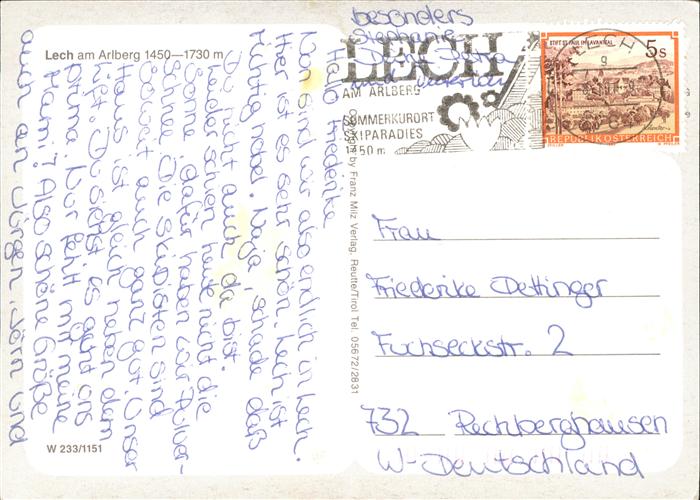 Lech am Arlberg 1450—1730 m
Hallo Friederike
Nun sind wir also endlich in Lech.
Hier ist es sehr schön. Lech ist
richtig nobel. Naja, schade daß
Du nicht auch da bist.
Leider schien heute nicht die
Sonne dafür haben wir Pulver-
schnee. Die Skipisten sind
soweit auch ganz gut. Unser
Haus ist gleich neben dem
Lift. Du siehst es geht uns
prima. Nur fehlt mir meine
Mami! Also schöne Grüße
auch an Jürgen, Jörn und
besonders
Stephanie
W 233/1151
Copyright by Franz Milz Verlag, Reutte/Tirol Tel. 05672/2831
LECH
AM ARLBERG
SOMMERKURORT
SKIPARADIES
1450 m
LECH
STIFT ST. PAUL IM LAVANTTAL
5 S
REPUBLIK ÖSTERREICH
Frau
Friederike Dettinger
Fuchseckstr. 2
732 Rechberghausen
W-Deutschland